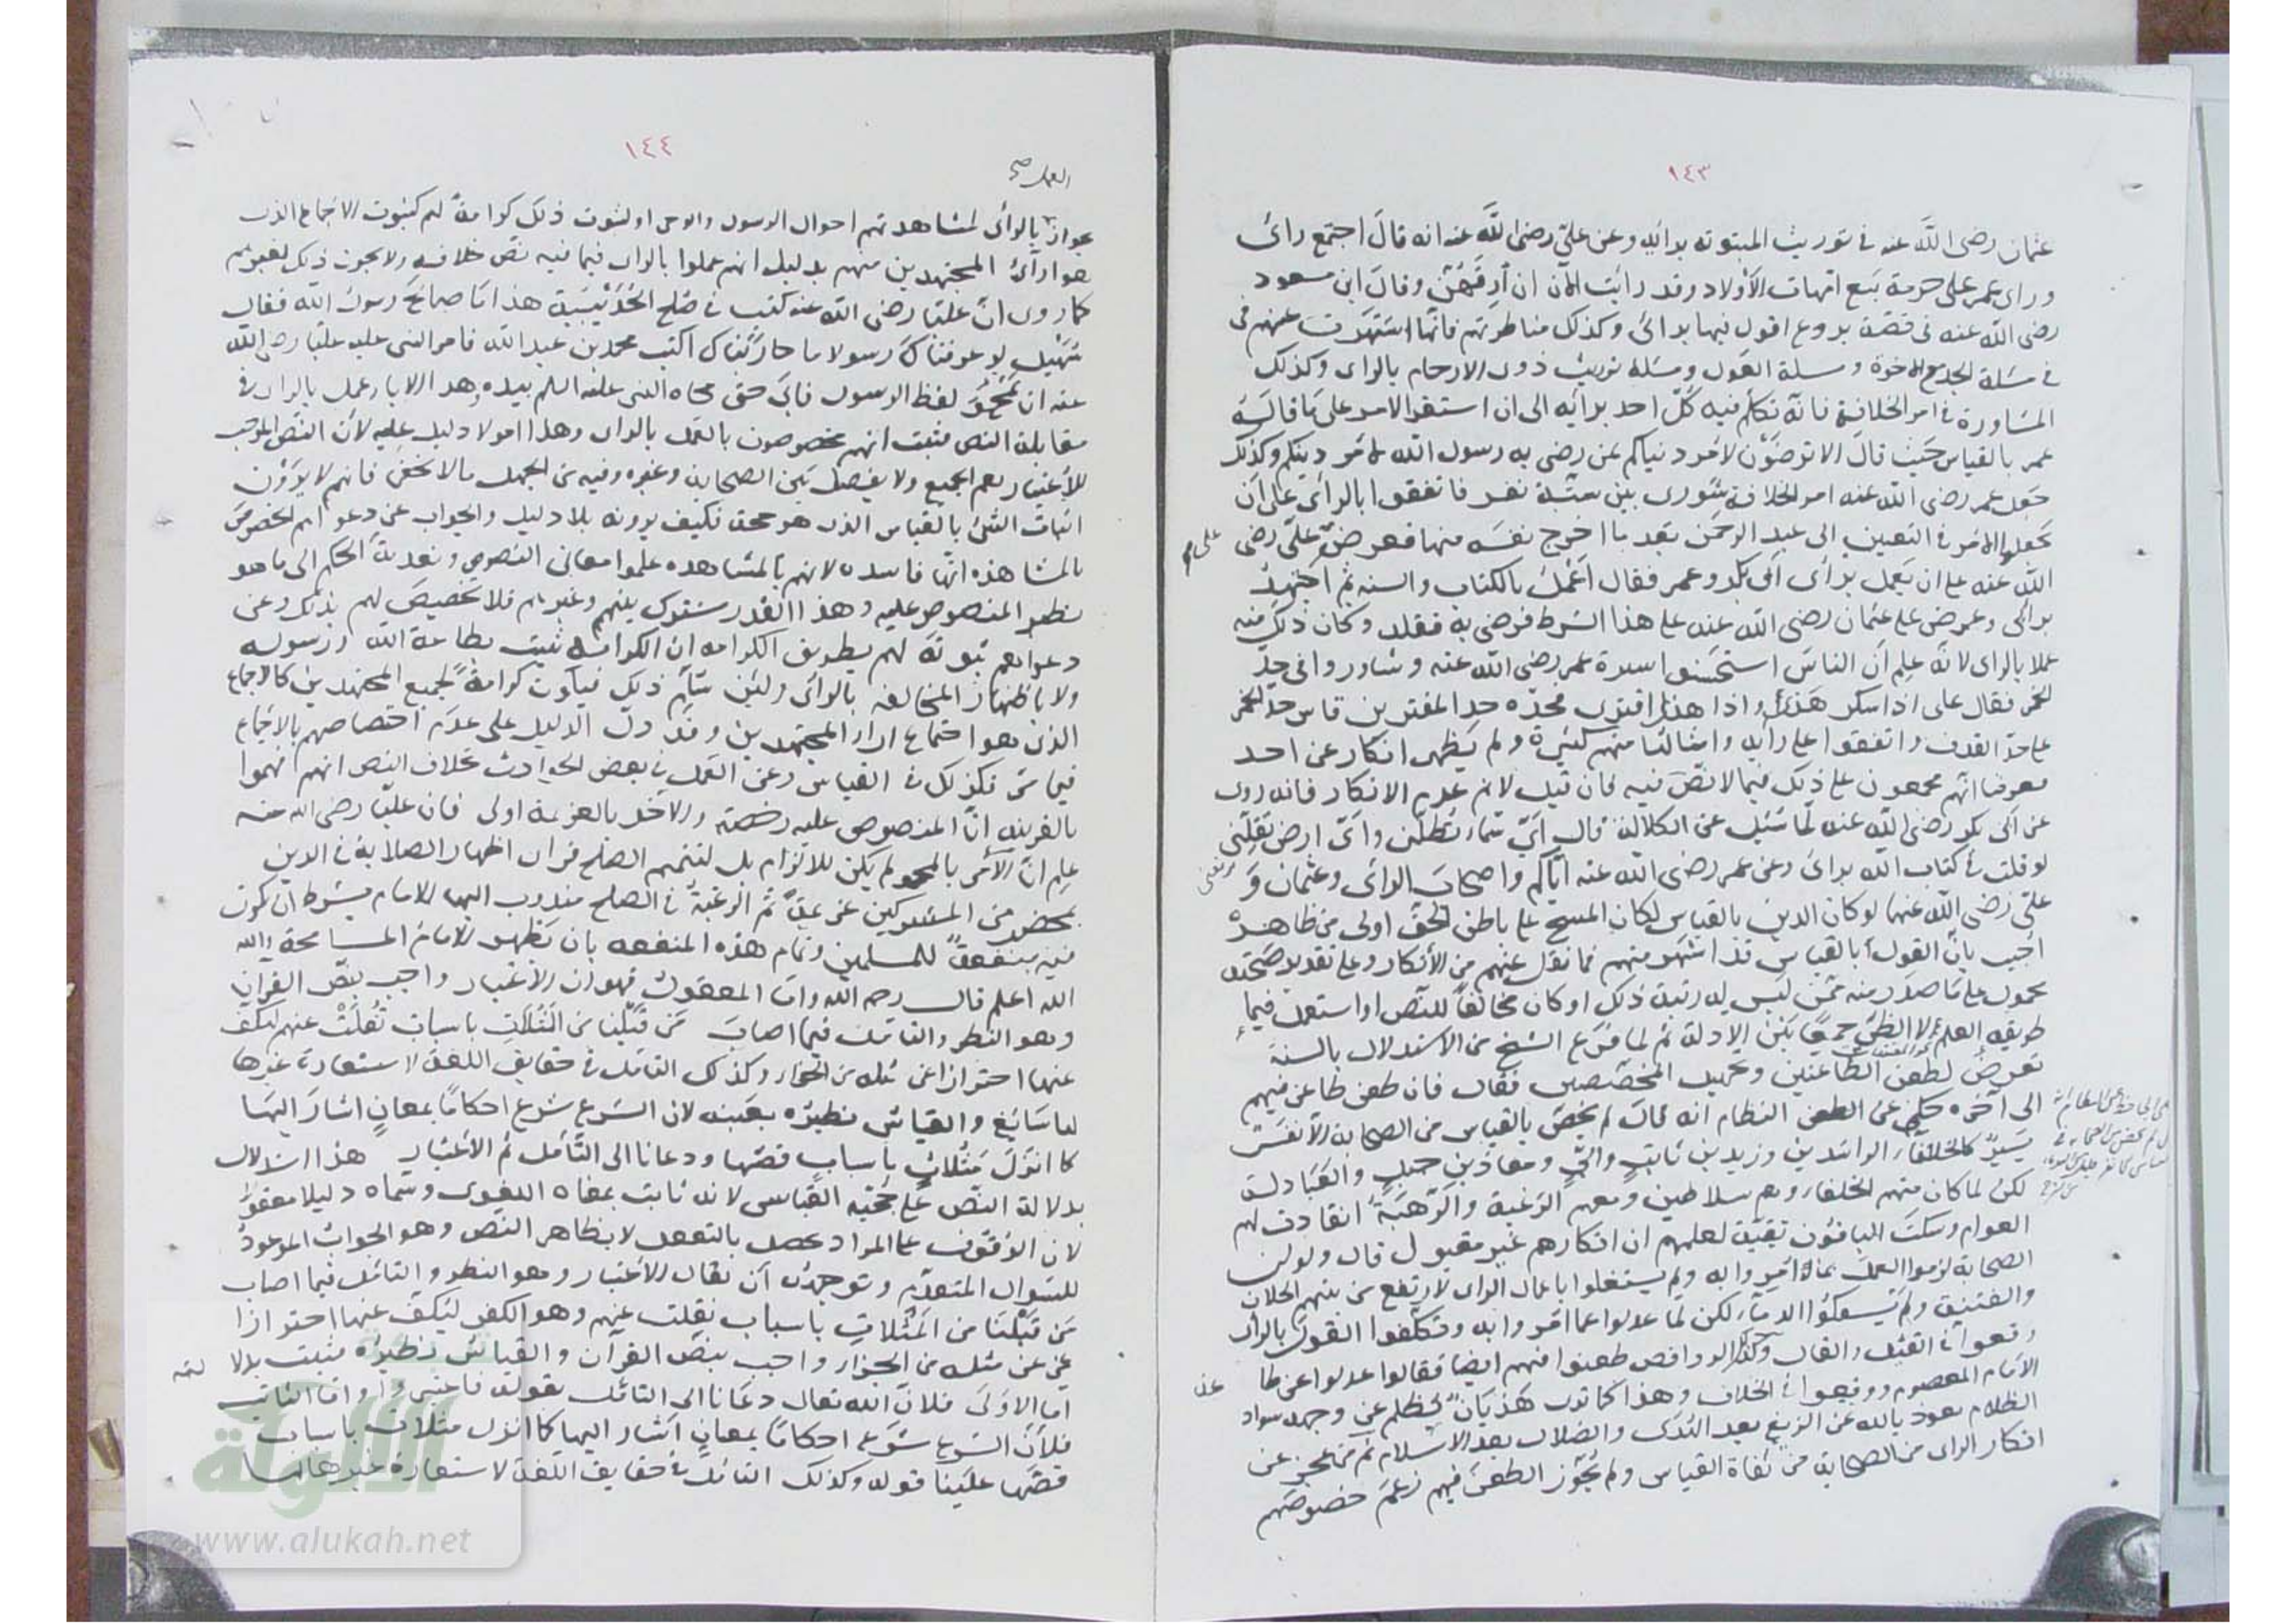 ١٤٣
عثمان رضى الله عنه فى توريث المبتوتة برأيه وعن على رضى الله عنه انه قال اجتمع رائى
وراى عمر على حرمة بيع امهات الاولاد وقد رأيت الآن ان أرقهن وقال ابن مسعود
رضى الله عنه فى قصة بروع اقول فيها برائى وكذلك مناظرتهم فانها اشتهرت عنهم فى
فى مسئلة الجد مع الاخوة ومسئلة العول ومسئلة توريث ذوى الارحام بالراى وكذلك
المشاورة فى امر الخلافة فانه تكلم فيه كل احد برأيه الى ان استقر الامر على ما قاله
عمر بالقياس حيث قال الا ترضون لامر دنياكم بمن رضى به رسول الله لامر دينكم وكذلك
جعل عمر رضى الله عنه امر الخلافة شورى بين ستة نفر فاتفقوا بالرأى على ان
يجعلوا الامر فى التعيين الى عبد الرحمن بعد ما اخرج نفسه منها فعرض على على رضى
الله عنه على ان يعمل برأى ابى بكر وعمر فقال اعمل بالكتاب والسنة ثم اجتهد
برائى وعرض على عثمان رضى الله عنه على هذا الشرط فرضى به فقلد وكان ذلك منه
عملا بالراى لانه علم ان الناس استحسنوا سيرة عمر رضى الله عنه وشاوروا فى حد
الخمر فقال على اذا سكر هذى واذا هذى افترى فحده حد المفترين قاس حد الخمر
على حد القذف واتفقوا على رأيه وامثالها منهم كثيرة ولم يظهر انكار عن احد
فعرفنا انهم مجمعون على ذلك فيما لا نص فيه فان قيل لا نم عدم الانكار فانه روى
عن ابى بكر رضى الله عنه لما سئل عن الكلالة قال اىّ سماء تظلنى واىّ ارض تقلنى
لو قلت فى كتاب الله برائى وعن عمر رضى الله عنه اياكم واصحاب الرأى وعثمان و
على رضى الله عنهما لو كان الدين بالقياس لكان المسح على باطن الخف اولى من ظاهره
اجيب بان القول بالقياس قد اشتهر منهم فما نقل عنهم من الانكار وعلى تقدير صحته
محمول على ما صدر منه ممن ليس له رتبة ذلك او كان مخالفا للنص او استعمل فيما
طريقه العلم لا الظن جمعا بين الادلة ثم لما فرغ الشيخ من الاستدلال بالسنة
تعرض لطعن الطاعنين وتخييل المخصصين فقال فان طعن طاعن فيهم
الى آخره حكى عن النظام انه قال لم يخض بالقياس من الصحابة الا نفر
يسير كالخلفاء الراشدين وزيد بن ثابت وابىّ ومعاذ بن جبل والعبادلة
لكن لما كان منهم الخلفاء وهم سلاطين ومعهم الرغبة والرهبة انقادت لهم
العوام وسكت الباقون تقية لعلمهم ان انكارهم غير مقبول قال ولو ان
الصحابة لزموا العمل بما امروا به ولم يشتغلوا باعمال الراى لارتفع من بينهم الخلاف
والفتنة ولم يسفكوا الدماء لكن لما عدلوا عما امروا به وتكلفوا القول بالراى
وقعوا فى القتل والقتال وكذا الروافض طعنوا فيهم ايضا فقالوا عدلوا عن طا عة
الامام المعصوم ووقعوا فى الخلاف وهذا كما ترى هذيان يظلم عن وجهه سواد
الظلام نعوذ بالله من الزيغ بعد الهدى والضلال بعد الاسلام ثم من عجز عن
انكار الراى من الصحابة من نفاة القياس ولم يجوز الطعن فيهم زعم خصوصهم
١٤٤
العمل صح
بجواز بالرأى لمشاهدتهم احوال الرسول والوحى او لثبوت ذلك كرامة لهم كثبوت الاجماع الذى
هو ارآء المجتهدين منهم بدليل انهم عملوا بالراى فيما فيه نص خلافه ولا يجوز ذلك لغيرهم
كما روى ان عليا رضى الله عنه كتب فى صلح الحديبية هذا ما صالح رسول الله فقال
سهيل لو عرفناك رسولا ما حاربناك اكتب محمد بن عبد الله فامر النبى عليه عليا رضى الله
عنه ان يمحو لفظ الرسول فابى حتى محاه النبى عليه السلم بيده وهذا الاباء عمل بالراى فى
مقابلة النص فثبت انهم مخصوصون بالعمل بالراى وهذا امر لا دليل عليه لأن النص الموجب
للاعتبار يعم الجميع ولا يفصل بين الصحابة وغيره وفيه من الجهل ما لا يخفى فانهم لا يرون
اثبات الشئ بالقياس الذى هو حجة فكيف يرونه بلا دليل والجواب عن دعواهم الخصوص
بالمشاهدة انها فاسدة لانهم بالمشاهدة علموا معانى النصوص وتعدية الحكم الى ما هو
نظير المنصوص عليه وهذا القدر مشترك بينهم وغيرهم فلا تخصيص لهم بذلك وعن
دعواهم ثبوته لهم بطريق الكرامة ان الكرامة تثبت بطاعة الله ورسوله
ولا باظهار المخالفة بالرأى ولئن سلم ذلك فيكون كرامة لجميع المجتهدين كالاجماع
الذى هو اجتماع اراء المجتهدين وقد دل الدليل على عدم اختصاصهم بالاجماع
فيما مر فكذلك فى القياس وعن العمل فى بعض الحوادث بخلاف النص انهم فهموا
بالقرينة انّ المنصوص عليه رخصة والاخذ بالعزيمة اولى فان عليا رضى الله عنه
علم ان الامر بالمحو لم يكن للالزام بل لتتميم الصلح فراى اظهار الصلابة فى الدين
بمحضر من المشركين عزيمة ثم الرغبة فى الصلح مندوب اليها الامام بشرط ان يكون
فيه منفعة للمسلمين وتمام هذه المنفعة بان يظهر الامام المسامحة والله
الله اعلم قال رحمه الله واما المعقول فهو ان الاعتبار واجب بنص القران
وهو النظر والتامل فيما اصاب من قبلنا من المثلات باسباب نقلت عنهم لنكف
عنها احترازا عن مثله من الجزاء وكذلك التامل فى حقايق اللغة لاستعارة غيرها
لها سائغ والقياس نظيره بعينه لان الشرع شرع احكاما بمعان اشار اليها
كما انزل مثلات باسباب قصها ودعانا الى التأمل ثم الاعتبار هذا استدلال
بدلالة النص على حجية القياس لانه ثابت بمعناه اللغوى وسماه دليلا معقولا
لان الوقوف على المراد يحصل بالتعقل لا بظاهر النص وهو الجواب الموعود
للسؤال المتقدم وتوجيهه ان يقال الاعتبار وهو النظر والتامل فيما اصاب
من قبلنا من المثلات باسباب نقلت عنهم وهو الكفر ليكف عنها احترازا
عن مثله من الجزاء واجب بنص القرآن والقياس نظيره فثبت بدلا لته
اما الاولى فلان الله تعالى دعانا الى التامل بقوله فاعتبروا واما الثانى
فلأن الشرع شرع احكاما بمعان اشار اليها كما انزل مثلات باسباب
قصها علينا قوله وكذلك التامل فى حقايق اللغة لاستعارة غيرها لها
الألوكة
www.alukah.net